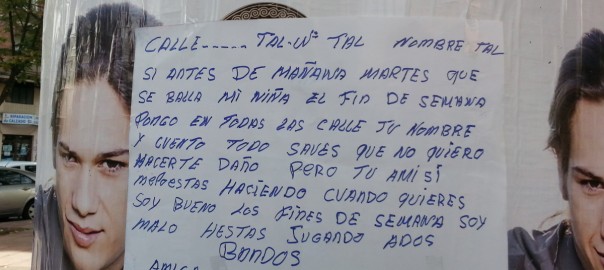 CALLE----- TAL-Nº TAL NOMBRE TAL
SI ANTES DE MAÑANA MARTES QUE
SE BALLA MI NIÑA EL FIN DE SEMANA
PONGO EN TODAS LAS CALLE TU NOMBRE
Y CUENTO TODO SAVES QUE NO QUIERO
HACERTE DAÑO PERO TU AMI SI
MEPOESTAS HACIENDO CUANDO QUIERES
SOY BUENO LOS FINES DE SEMANA SOY
MALO MESTAS JUGANDO ADOS
BANDOS
AMIGA